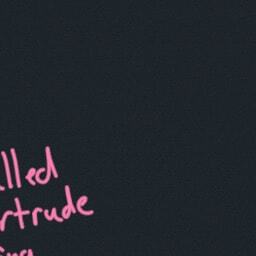 lled
rtrude